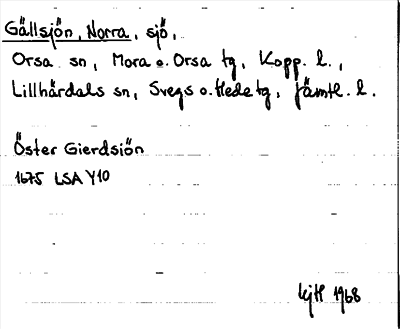 Gällsjön, Norra, sjö,
Orsa sn, Mora o. Orsa tg, Kopp. l.,
Lillhärdals sn, Svegs o. Hede tg, Jämtl. l.
Öster Gierdsiön
1675 LSA Y10
1968